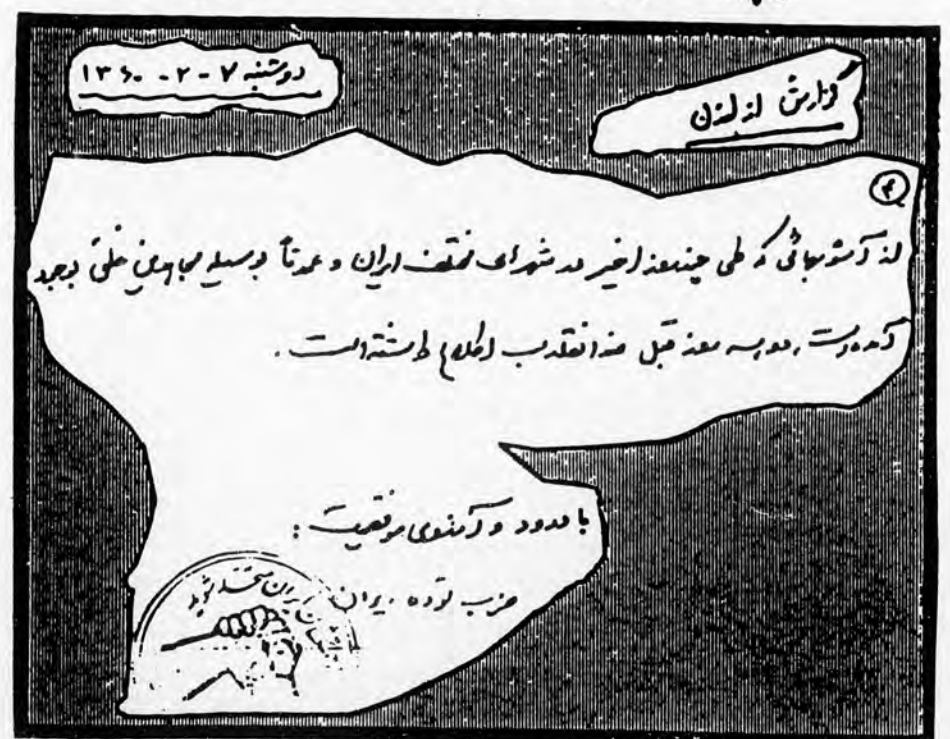 گزارش از لندن
دوشنبه ۷-۲-۱۳۶۰
۴
از آشوبهائی که طی چند روز اخیر در شهرهای مختلف ایران و عمدتاً بوسیله مجاهدین خلق بوجود
آمده است، دو سه روز قبل ضد انقلاب اطلاع داشته است.
با درود و آرزوی موفقیت :
حزب توده ایران
ایران متحد شوید